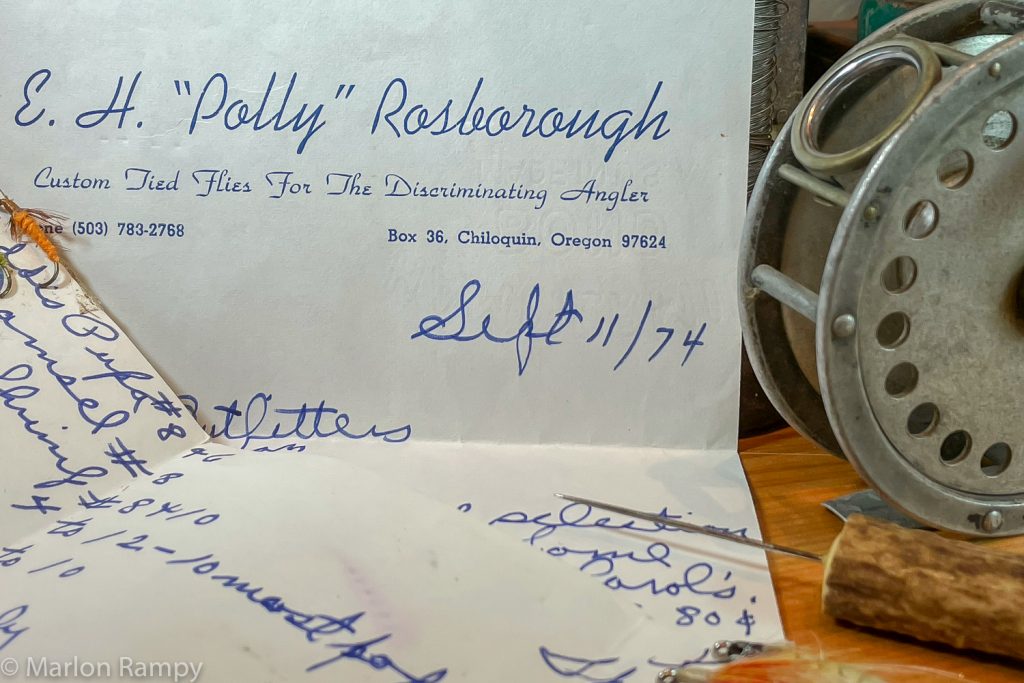 E. H. "Polly" Rosborough
Custom Tied Flies For The Discriminating Angler
(503) 783-2768
Box 36, Chiloquin, Oregon 97624
Sept 11/74
Outfitters
Pupa #8
Damsel #8
#8410
to 12-10 most
to 10
selection
some
Carol's.
80¢
© Marlon Rampy